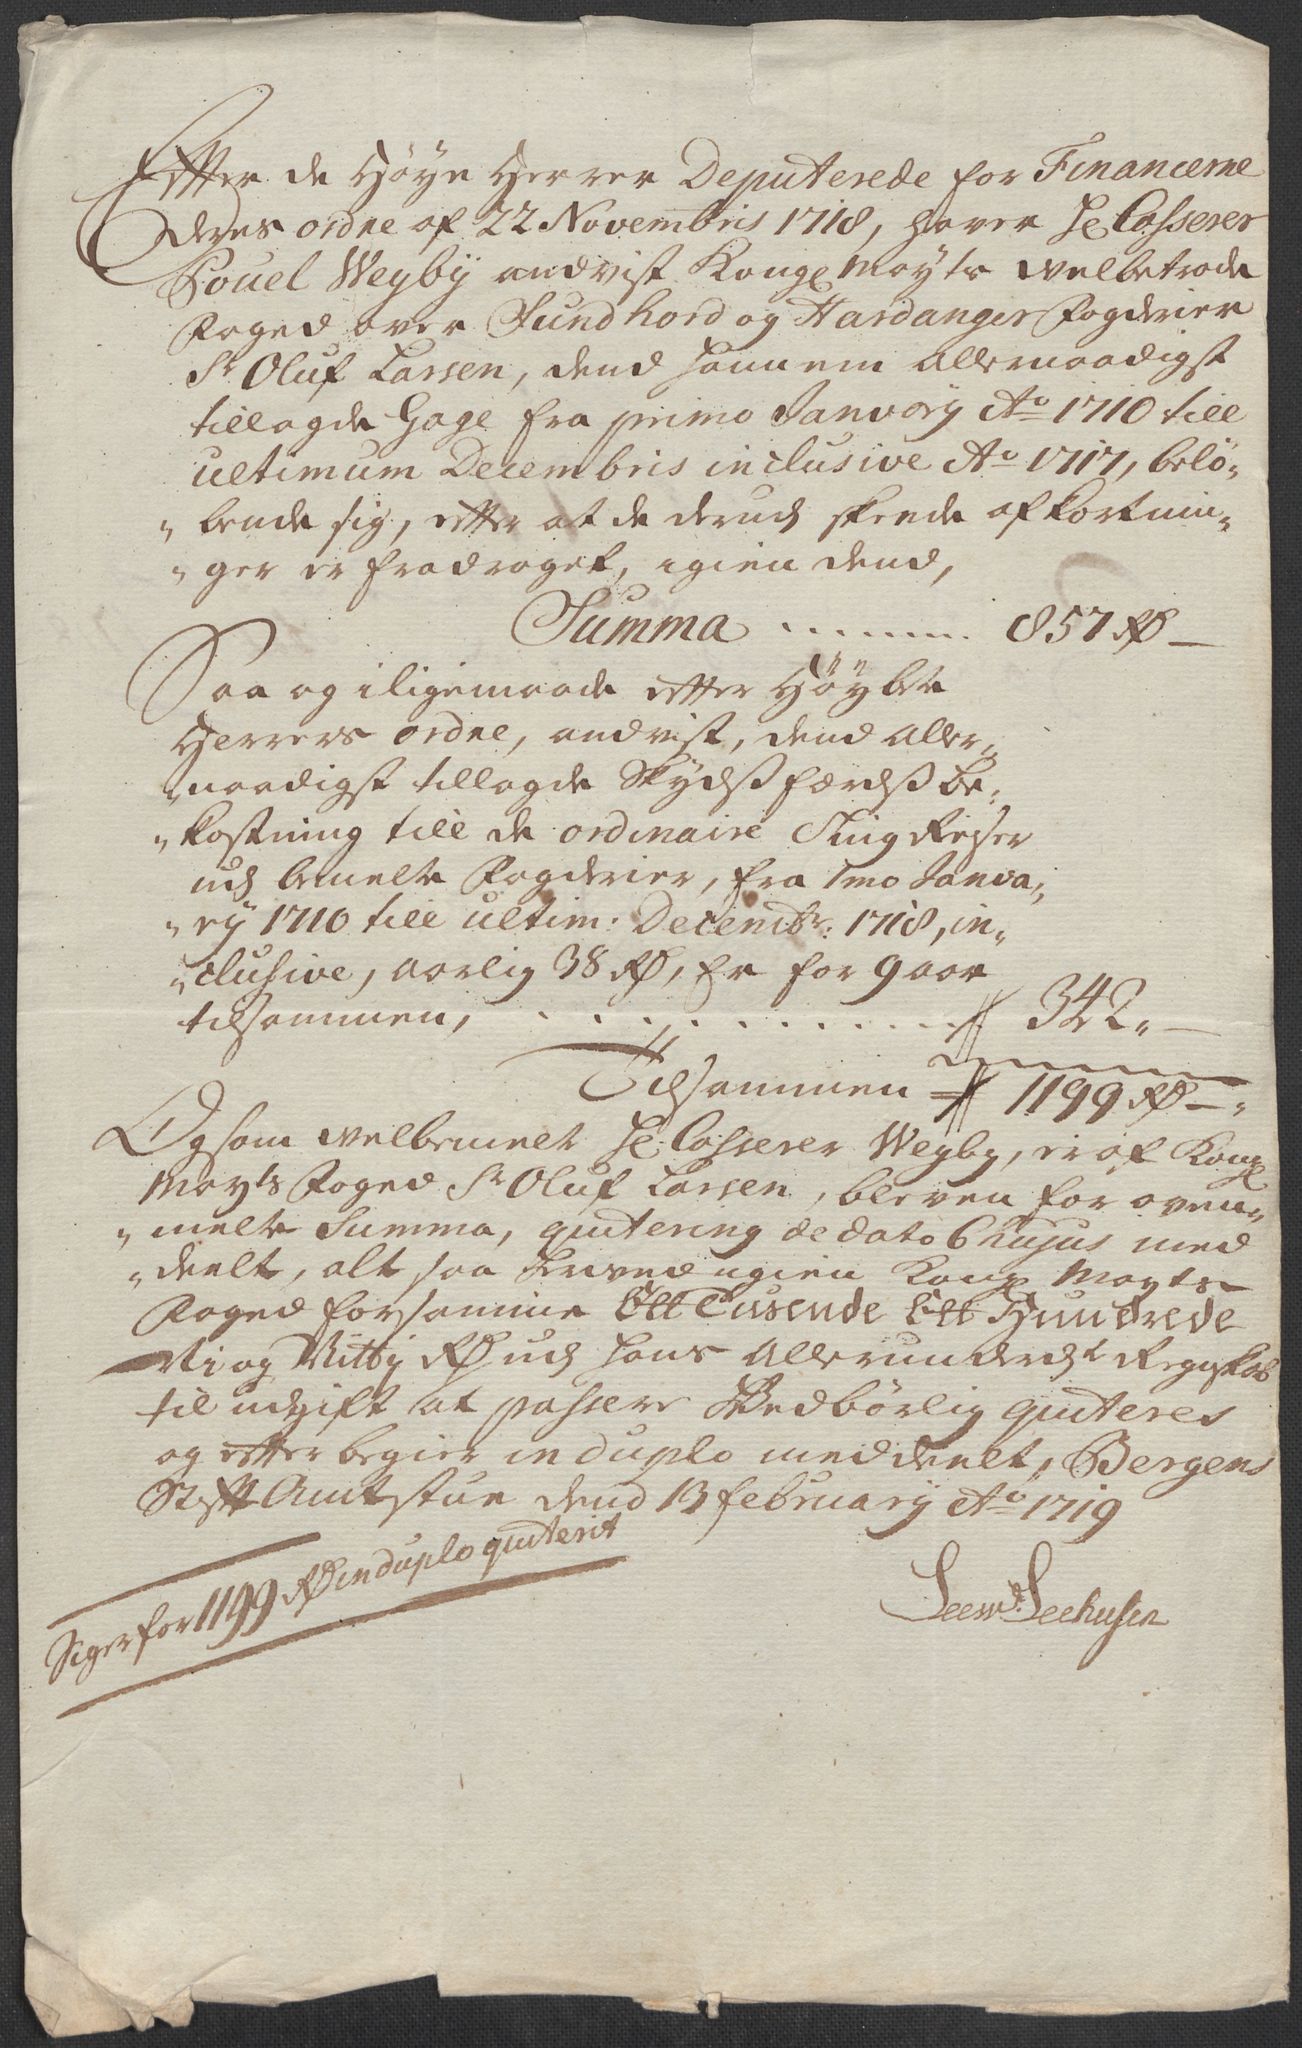 Effter de Høye Herrer Deputerede for Financerne
Deres ordre af 22 Novembris 1718, haver Hr Casserer
Povel Weyby andvist Kongl Mayts welbetrode
Foged over Sundhord og Hardanger Fogderier
Sr Oluf Larsen, dend hannem allernaadigst
tillagde Gage fra primo Janvarij Ao 1710 till
ultimum Decembris inclusive Ao 1717, belø-
bende sig, effter at de derudj skeede afkortnin-
ger er fradraget, igien dend,
Summa ........ 857 Rd —
Saa og i ligemaade effter Høybte
Herrers ordre, andvist, dend aller-
naadigst tillagde Skydsferds be-
kostning till de ordinaire Ting Reiser
udj bemelte Fogderier, fra 1mo Janva-
rij 1710 till ultim: Decembr: 1718, in-
clusive, aarlig 38 Rd, Er for 9 aar
tilsammen, ............ 342 „ —
Tilsammen 1199 Rd —
Og som welbemelt Hr Casserer Weyby, er af Kongl
Mayts Foged Sr Oluf Larsen, bleven for oven-
melte Summa, qvitering de dato 6 hujus med
deelt, alt saa bliver igien Kongl Mayts
Foged for samme Ett Tusende Ett Hundrede
Ni og Nitty Rd udj hans allerunderdst Regnskab
til udgift at passere Wedbørlig qviteres
og effter begier in duplo meddeelt, Bergens
Stifft Amtstue dend 13 februarij Ao 1719
Siger for 1199 Rd in duplo qviterit
Seewd: Seehusen